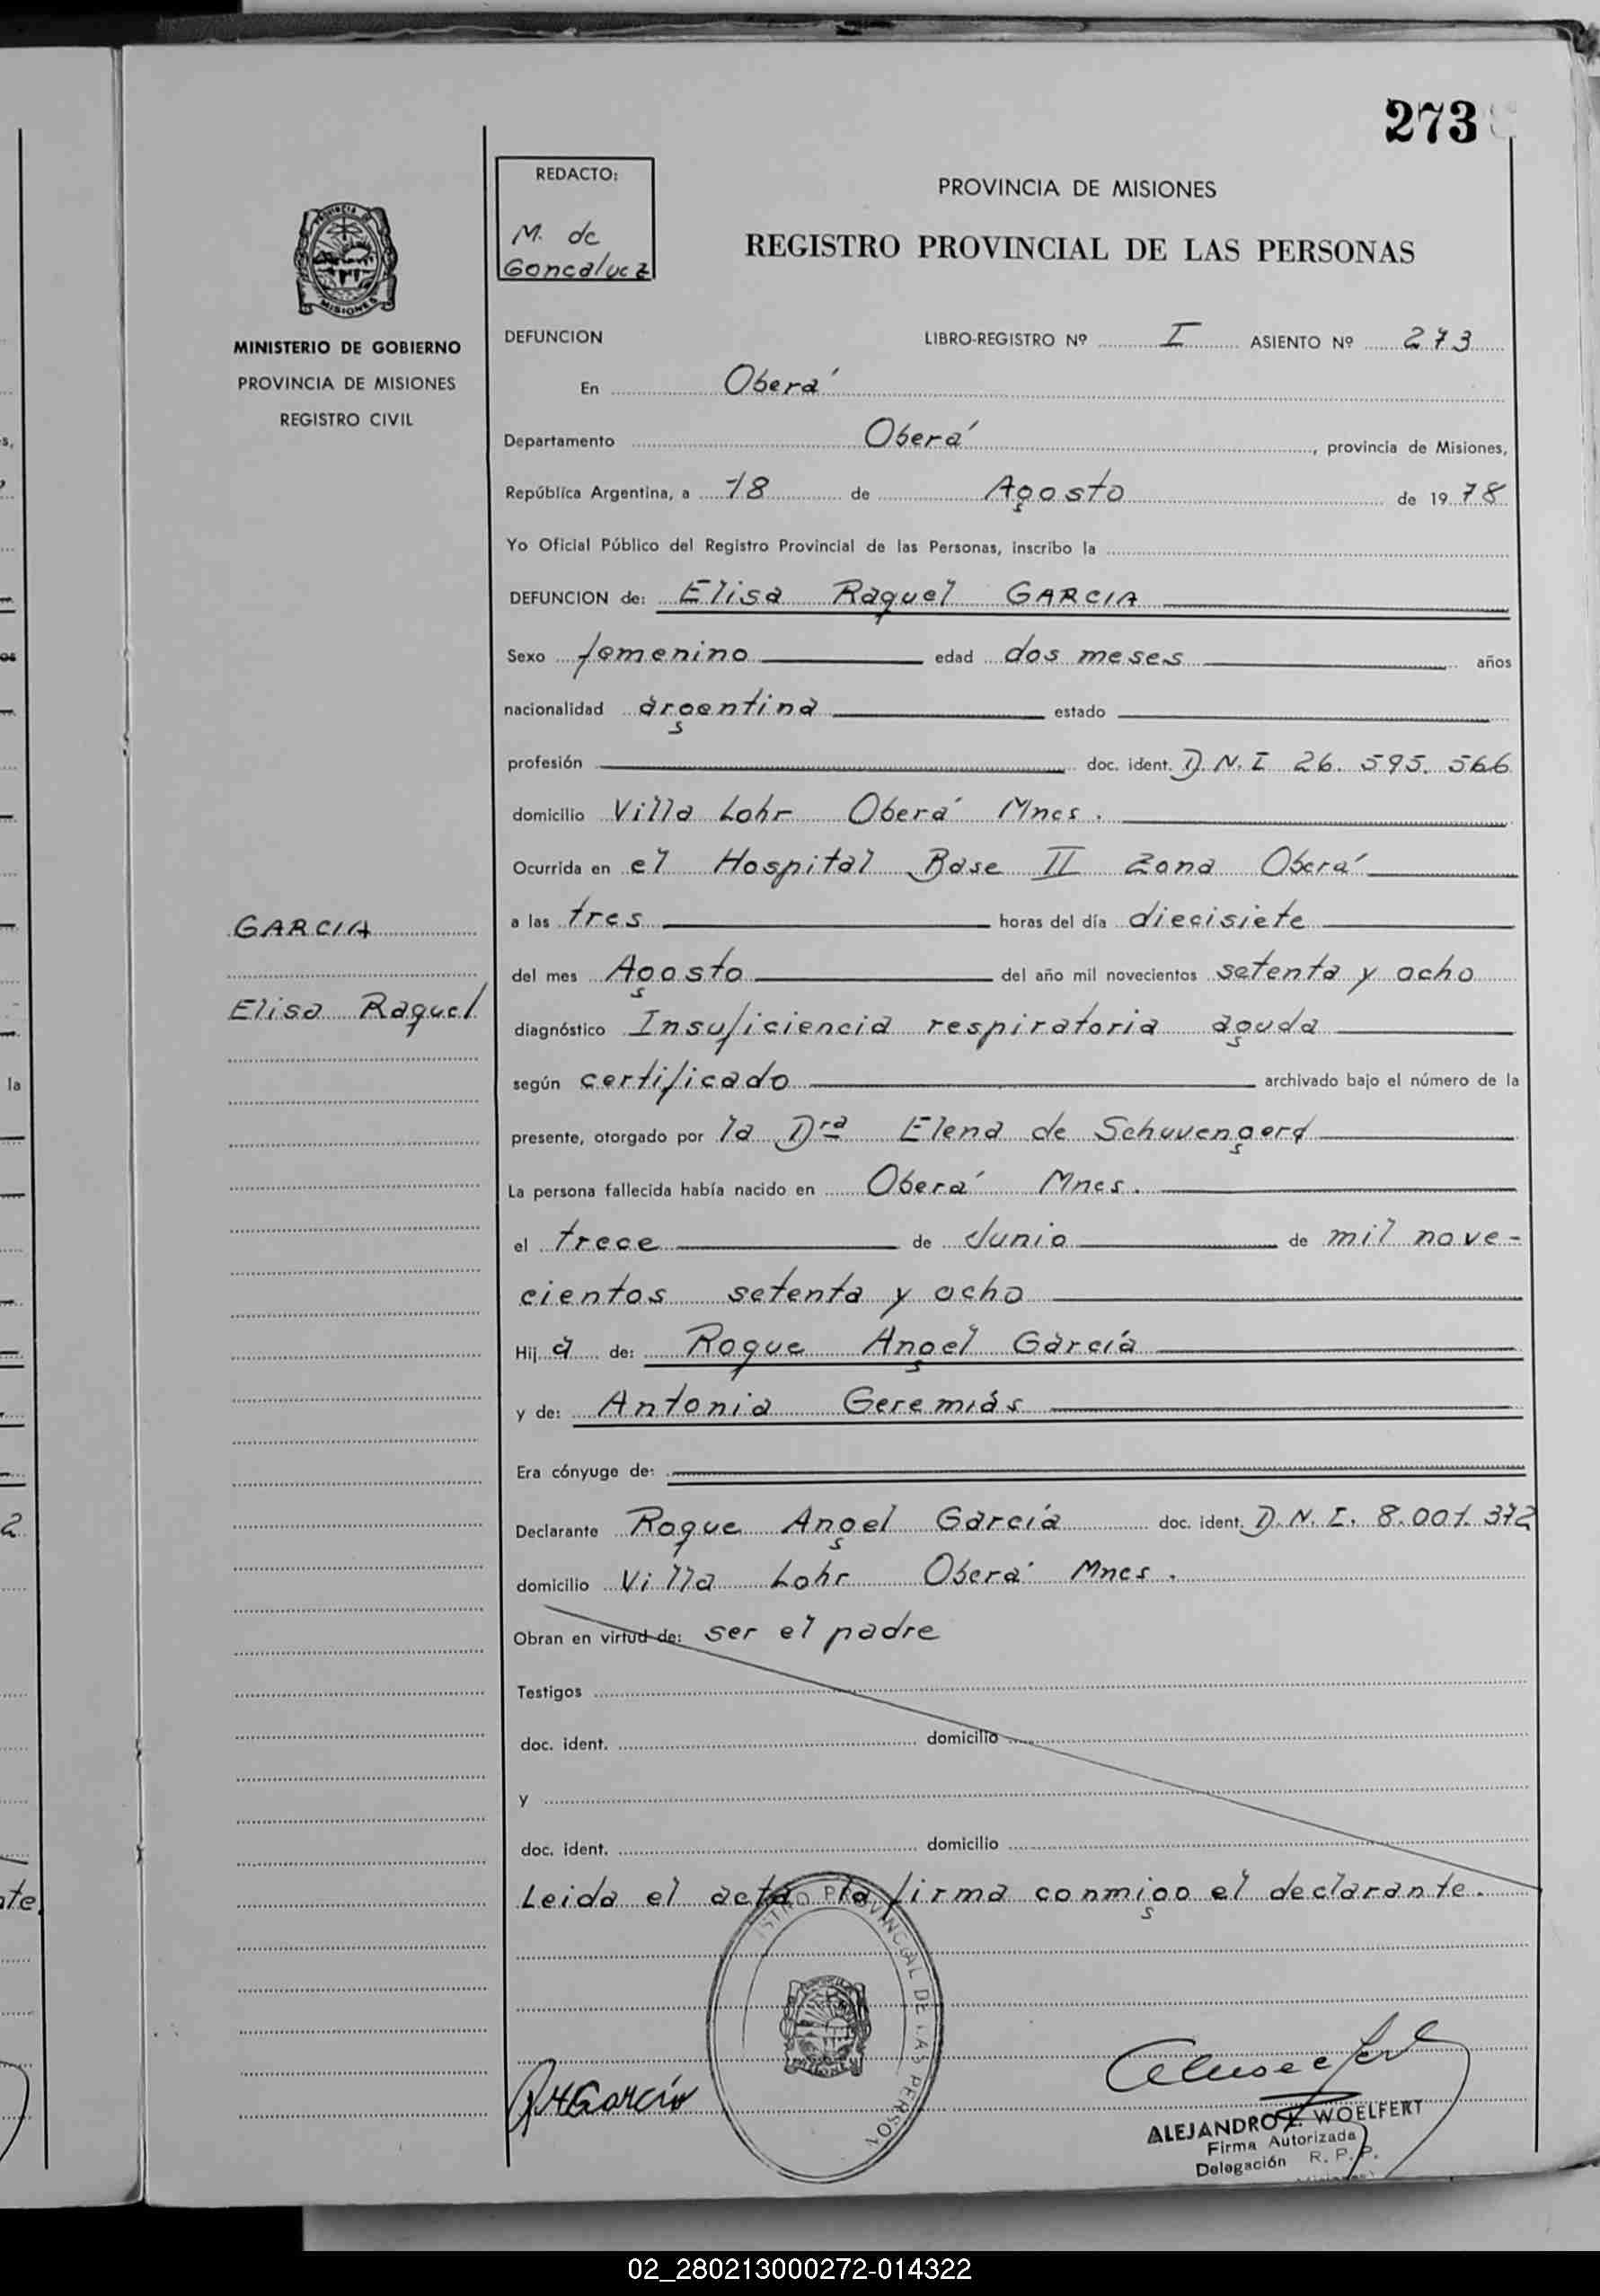 273
REDACTO:
M. de
Goncalvez
PROVINCIA DE MISIONES
REGISTRO PROVINCIAL DE LAS PERSONAS
PROVINCIA DE
MISIONES
MINISTERIO DE GOBIERNO
PROVINCIA DE MISIONES
REGISTRO CIVIL
DEFUNCION LIBRO-REGISTRO Nº I ASIENTO Nº 273
En Oberá
Departamento Oberá, provincia de Misiones,
República Argentina, a 18 de Agosto de 1978
Yo Oficial Público del Registro Provincial de las Personas, inscribo la
DEFUNCION de: Elisa Raquel GARCIA
Sexo femenino edad dos meses años
nacionalidad argentina estado
profesión doc. ident. D.N.I 26.595.566
domicilio Villa Lohr Oberá Mnes.
Ocurrida en el Hospital Base II Zona Oberá
a las tres horas del día diecisiete
del mes Agosto del año mil novecientos setenta y ocho
diagnóstico Insuficiencia respiratoria aguda
según certificado archivado bajo el número de la
presente, otorgado por la Dra Elena de
La persona fallecida había nacido en Oberá Mnes.
el trece de Junio de mil nove-
cientos setenta y ocho
Hija de: Roque Angel García
y de: Antonia Geremías
Era cónyuge de:
Declarante Roque Angel García doc. ident. D.N.I. 8.001.372
domicilio Villa Lohr Oberá Mnes.
Obran en virtud de: ser el padre
Testigos
doc. ident. domicilio
y
doc. ident. domicilio
Leida el acta la firma conmigo el declarante.
GARCIA
Elisa Raquel
PROVINCIAL DE LAS PERSON
García
ALEJANDRO WOELFERT
Firma Autorizada
Delegación R. P. P.
s,
os
la
2
nte.
02_280213000272-014322